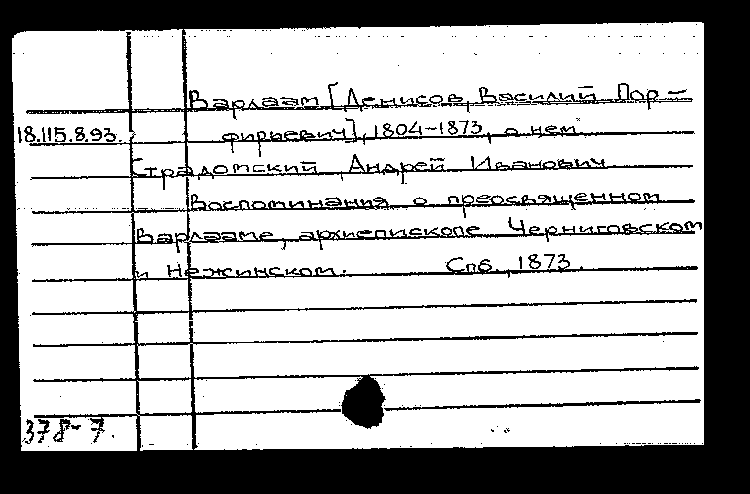 Варлаам [Денисов, Василий Пор-
18.115.8.93. фирьевич], 1804-1873, о нем.
Страдомский, Андрей Иванович.
Воспоминания о преосвященном
Варлааме, архиепископе Черниговском
и Нежинском. Спб., 1873.
378-7.